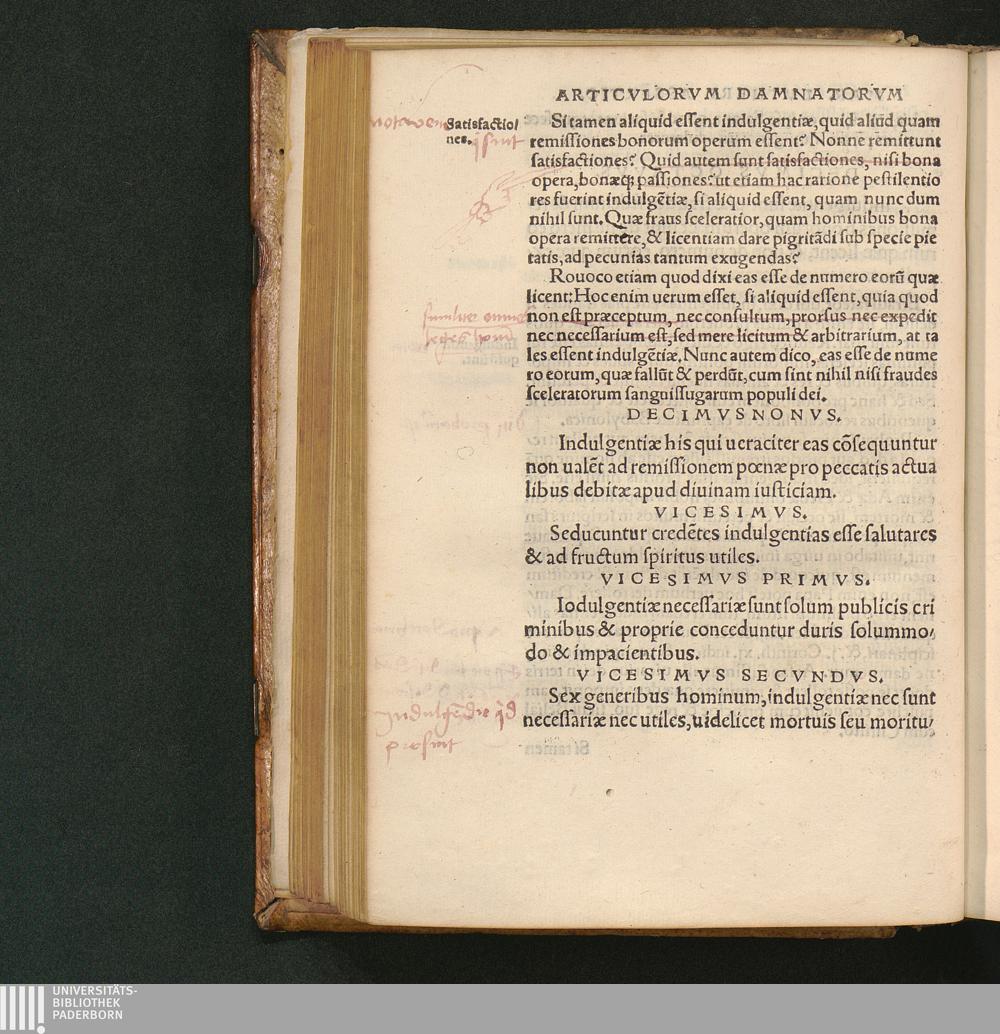 ARTICVLORVM DAMNATORVM
Satisfactio/
nes.
Si tamen aliquid essent indulgentiæ, quid aliud quam
remissiones bonorum operum essent? Nonne remittunt
satisfactiones? Quid autem sunt satisfactiones, nisi bona
opera, bonæq; passiones? ut etiam hac ratione pestilentio
res fuerint indulgẽtiæ, si aliquid essent, quam nunc dum
nihil sunt. Quæ fraus sceleratior, quam hominibus bona
opera remittere, & licentiam dare pigritãdi sub specie pie
tatis, ad pecunias tantum exugendas?
Rouoco etiam quod dixi eas esse de numero eorũ quæ
licent: Hoc enim uerum esset, si aliquid essent, quia quod
non est præceptum, nec consultum, prorsus nec expedit
nec necessarium est, sed mere licitum & arbitrarium, at ta
les essent indulgẽtiæ. Nunc autem dico, eas esse de nume
ro eorum, quæ fallũt & perdũt, cum sint nihil nisi fraudes
sceleratorum sanguissugarum populi dei.
DECIMVSNONVS.
Indulgentiæ his qui ueraciter eas cõsequuntur
non ualẽt ad remissionem pœnæ pro peccatis actua
libus debitæ apud diuinam iusticiam.
VICESIMVS.
Seducuntur credẽtes indulgentias esse salutares
& ad fructum spiritus utiles.
VICESIMVS PRIMVS.
Iodulgentiæ necessariæ sunt solum publicis cri
minibus & proprie conceduntur duris solummo/
do & impacientibus.
VICESIMVS SECVNDVS.
Sex generibus hominum, indulgentiæ nec sunt
necessariæ nec utiles, uidelicet mortuis seu moritu/
UNIVERSITÄTS-
BIBLIOTHEK
PADERBORN